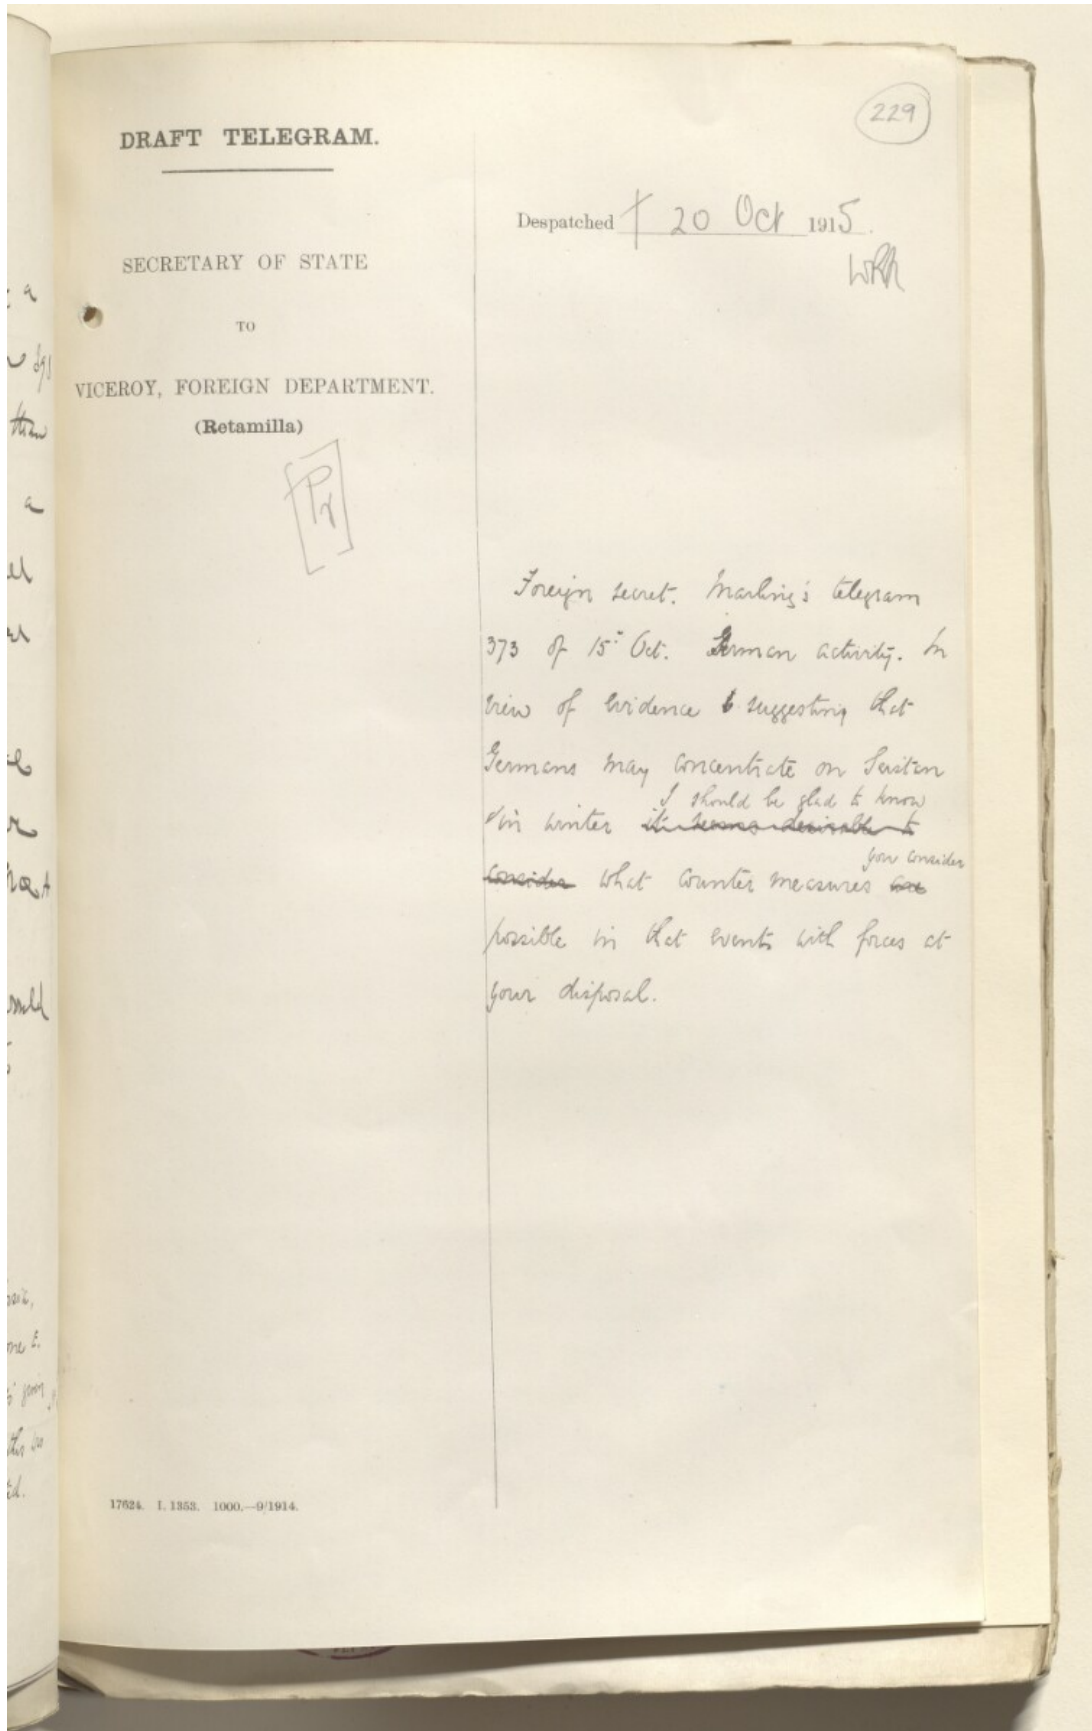 229
DRAFT TELEGRAM.
SECRETARY OF STATE
TO
VICEROY, FOREIGN DEPARTMENT.
(Retamilla)
Despatched 20 Oct 1915.
Foreign secret. Marling's telegram
373 of 15th Oct. German activity. In
view of evidence suggesting that
Germans may concentrate on Seistan
in winter I should be glad to know
it seems desirable to
consider what counter measures you consider
are
possible in that event with forces at
your disposal.
17624. I. 1353. 1000.—9/1914.
a
than
a